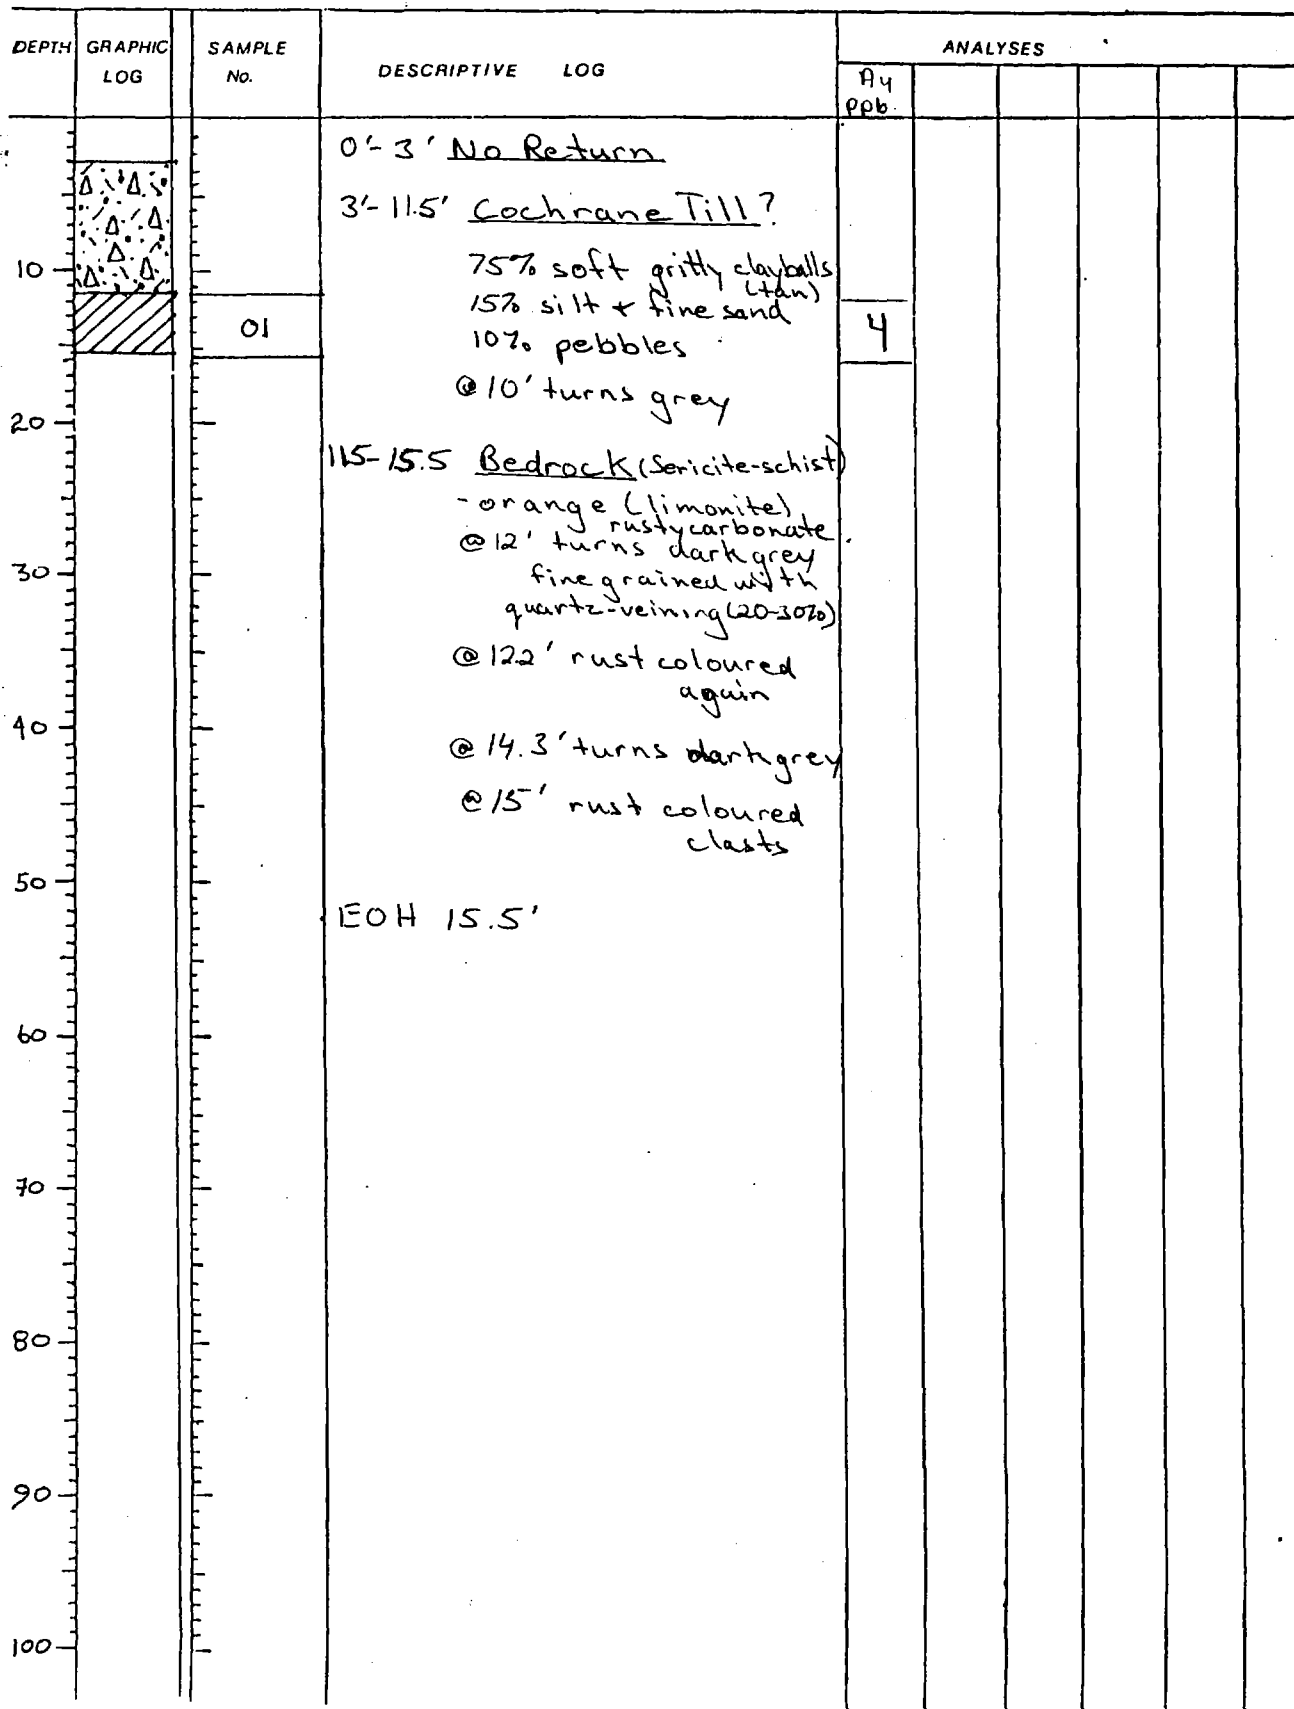 DEPTH GRAPHIC LOG SAMPLE No. DESCRIPTIVE LOG ANALYSES
Au ppb.
0'- 3' No Return
3'- 11.5' Cochrane Till?
75% soft gritty clayballs
(tan)
15% silt + fine sand
10% pebbles
@ 10' turns grey
11.5-15.5 Bedrock (Sericite-schist)
- orange (limonite)
rusty carbonate.
@ 12' turns dark grey
fine grained with
quartz-veining (20-30%)
@ 12.2' rust coloured
again
@ 14.3' turns dark grey
@ 15' rust coloured
clasts
EOH 15.5'
01
4
10
20
30
40
50
60
70
80
90
100